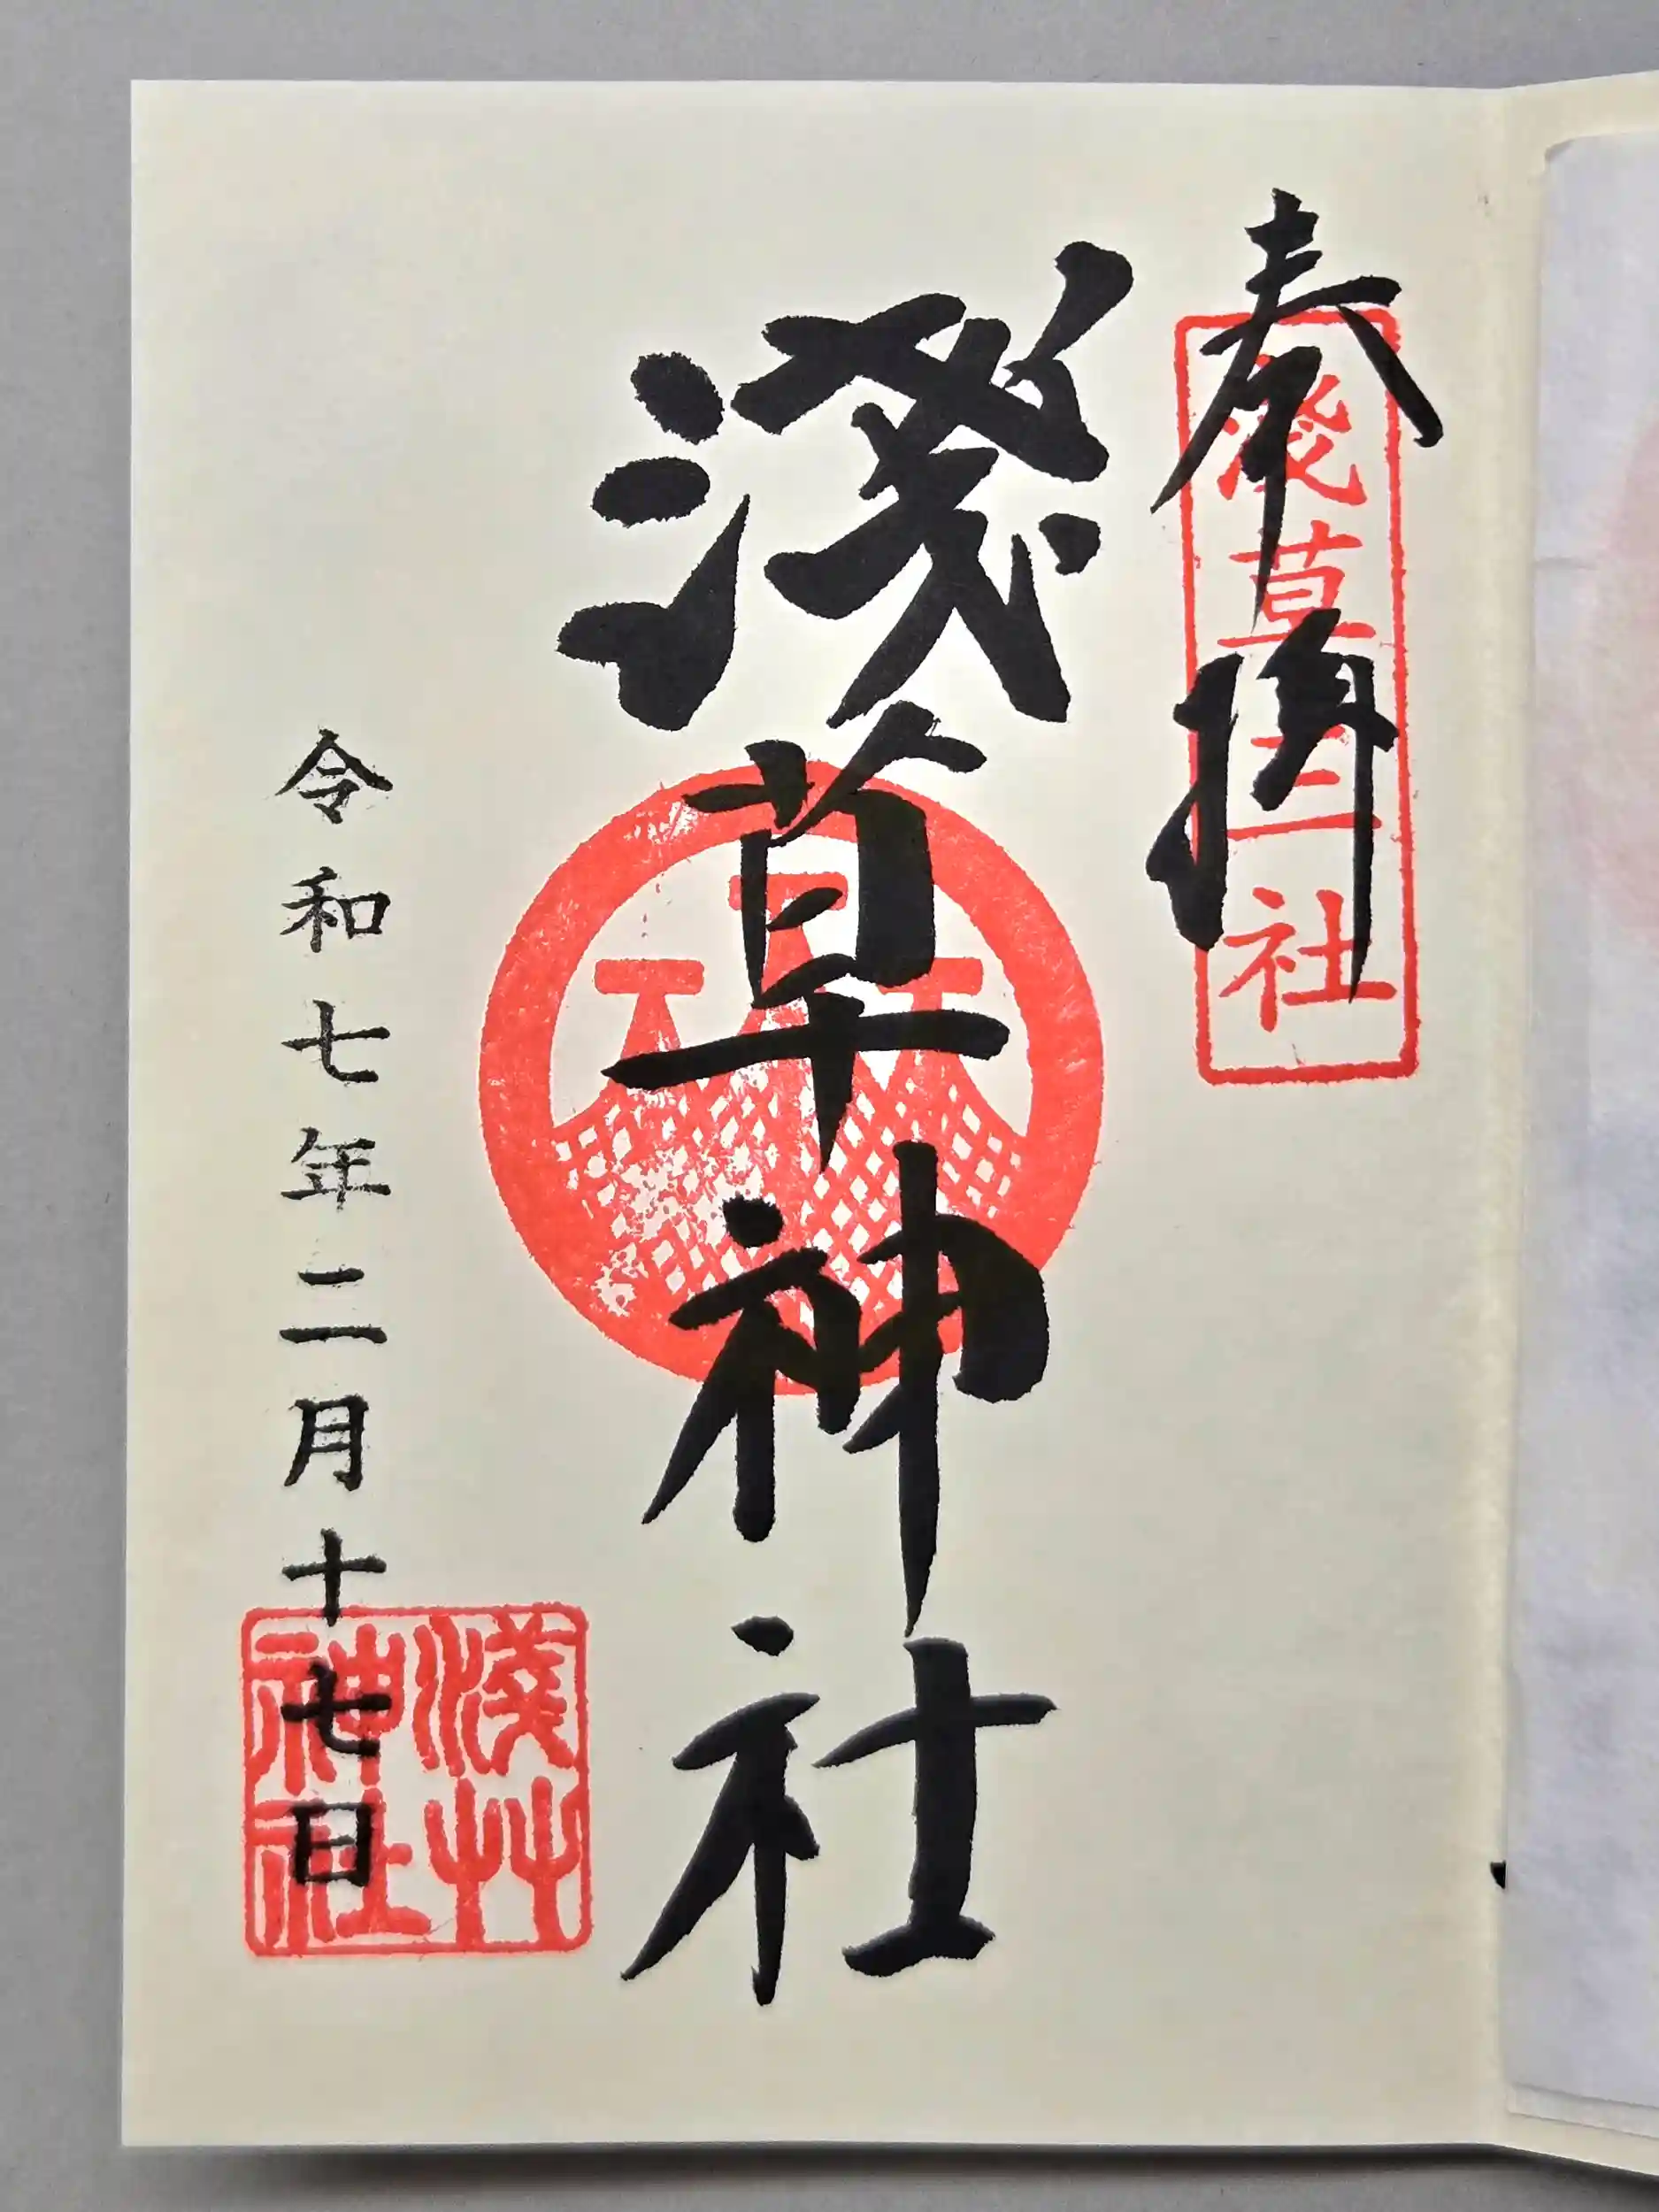 奉拝
淺草三社
淺草神社
令和七年二月十七日
淺艸神社